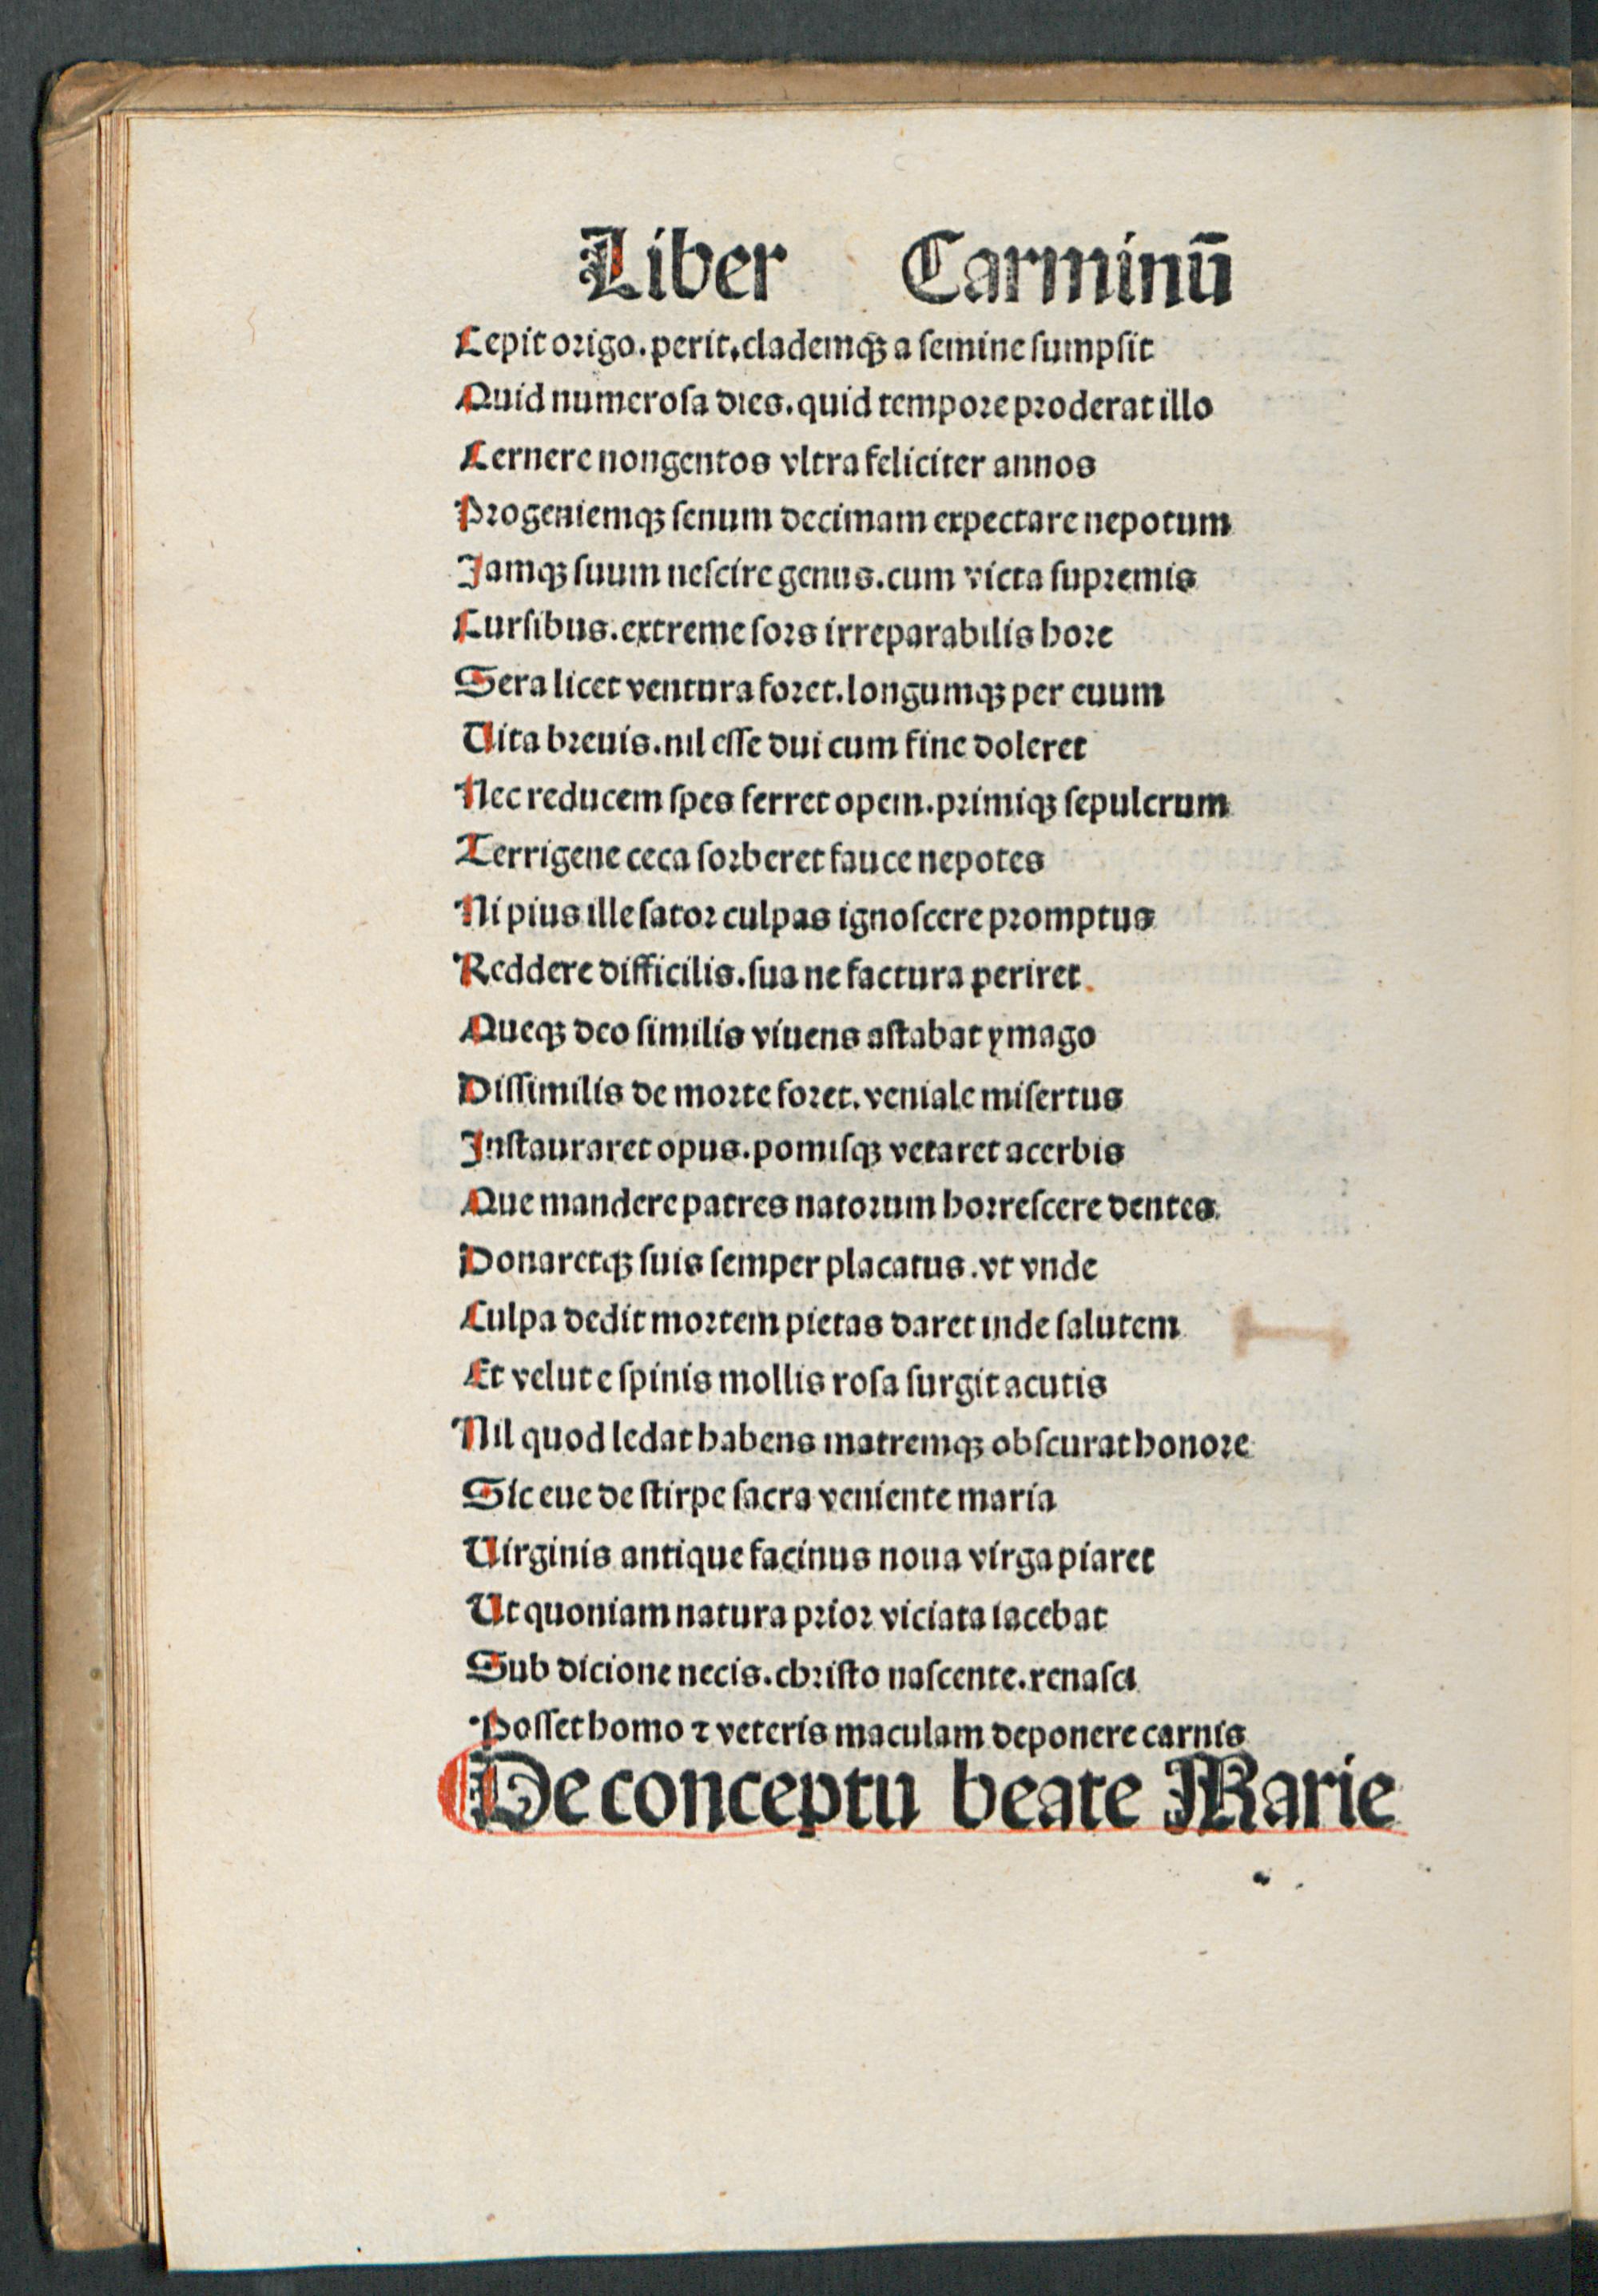 Liber Carminū
Cepit origo. perit. clademqꝫ a ſemine ſumpſit
Quid numeroſa dies. quid tempore proderat illo
Cernere nongentos vltra feliciter annos
Progeniemqꝫ ſenum decimam expectare nepotum
Jamqꝫ ſuum neſcire genus. cum victa ſupremis
Curſibus. extreme ſors irreparabilis hore
Sera licet ventura foret. longumqꝫ per euum
Uita breuis. nil eſſe dui cum fine doleret
Nec reducem ſpes ferret opem. primiqꝫ ſepulcrum
Terrigene ceca ſorberet fauce nepotes
Ni pius ille ſator culpas ignoſcere promptus
Reddere difficilis. ſua ne factura periret.
Queqꝫ deo ſimilis viuens aſtabat ymago
Diſſimilis de morte foret. veniale miſertus
Jnſtauraret opus. pomiſqꝫ vetaret acerbis
Que mandere patres natorum horreſcere dentes.
Donaretqꝫ ſuis ſemper placatus. vt vnde
Culpa dedit mortem pietas daret inde ſalutem
Et velut e ſpinis mollis roſa ſurgit acutis
Nil quod ledat habens matremqꝫ obſcurat honore
Sic eue de ſtirpe ſacra veniente maria
Uirginis antique facinus noua virga piaret
Ut quoniam natura prior viciata iacebat
Sub dicione necis. chriſto naſcente. renaſci
Poſſet homo ⁊ veteris maculam deponere carnis
De conceptu beate Marie